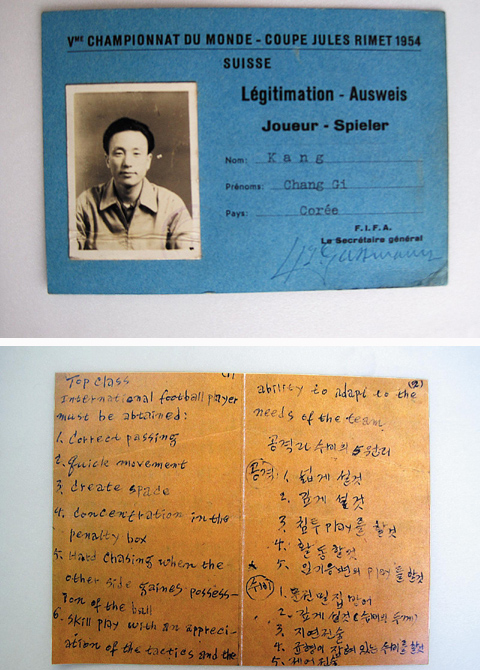 Vᴹᴱ CHAMPIONNAT DU MONDE - COUPE JULES RIMET 1954
SUISSE
Légitimation - Ausweis
Joueur - Spieler
Nom: Kang
Prénoms: Chang Gi
Pays: Corée
F.I.F.A.
Le Secrétaire général
Top class
International football player
must be obtained:
1. Correct passing
2. quick movement
3. Create space
4. Concentration in the
penalty box
5. Hard chasing when the
other side gaines possess-
ion of the ball
6. Skill play with an appreci-
ation of the tactics and the
ability to adapt to the
needs of the team.
공격과 수비의 5원리
공격 1. 넓게 설것
2. 깊게 설것
3. 침투 play를 할것
4. 활동할것
5. 임기응변의 play를 할것
수비 1. 문전 밀집 방어
2. 깊게 설것 (수비의 두께)
3. 지연전술
4. 균형이 잡혀 있는 수비를 할것
5. 제어전술